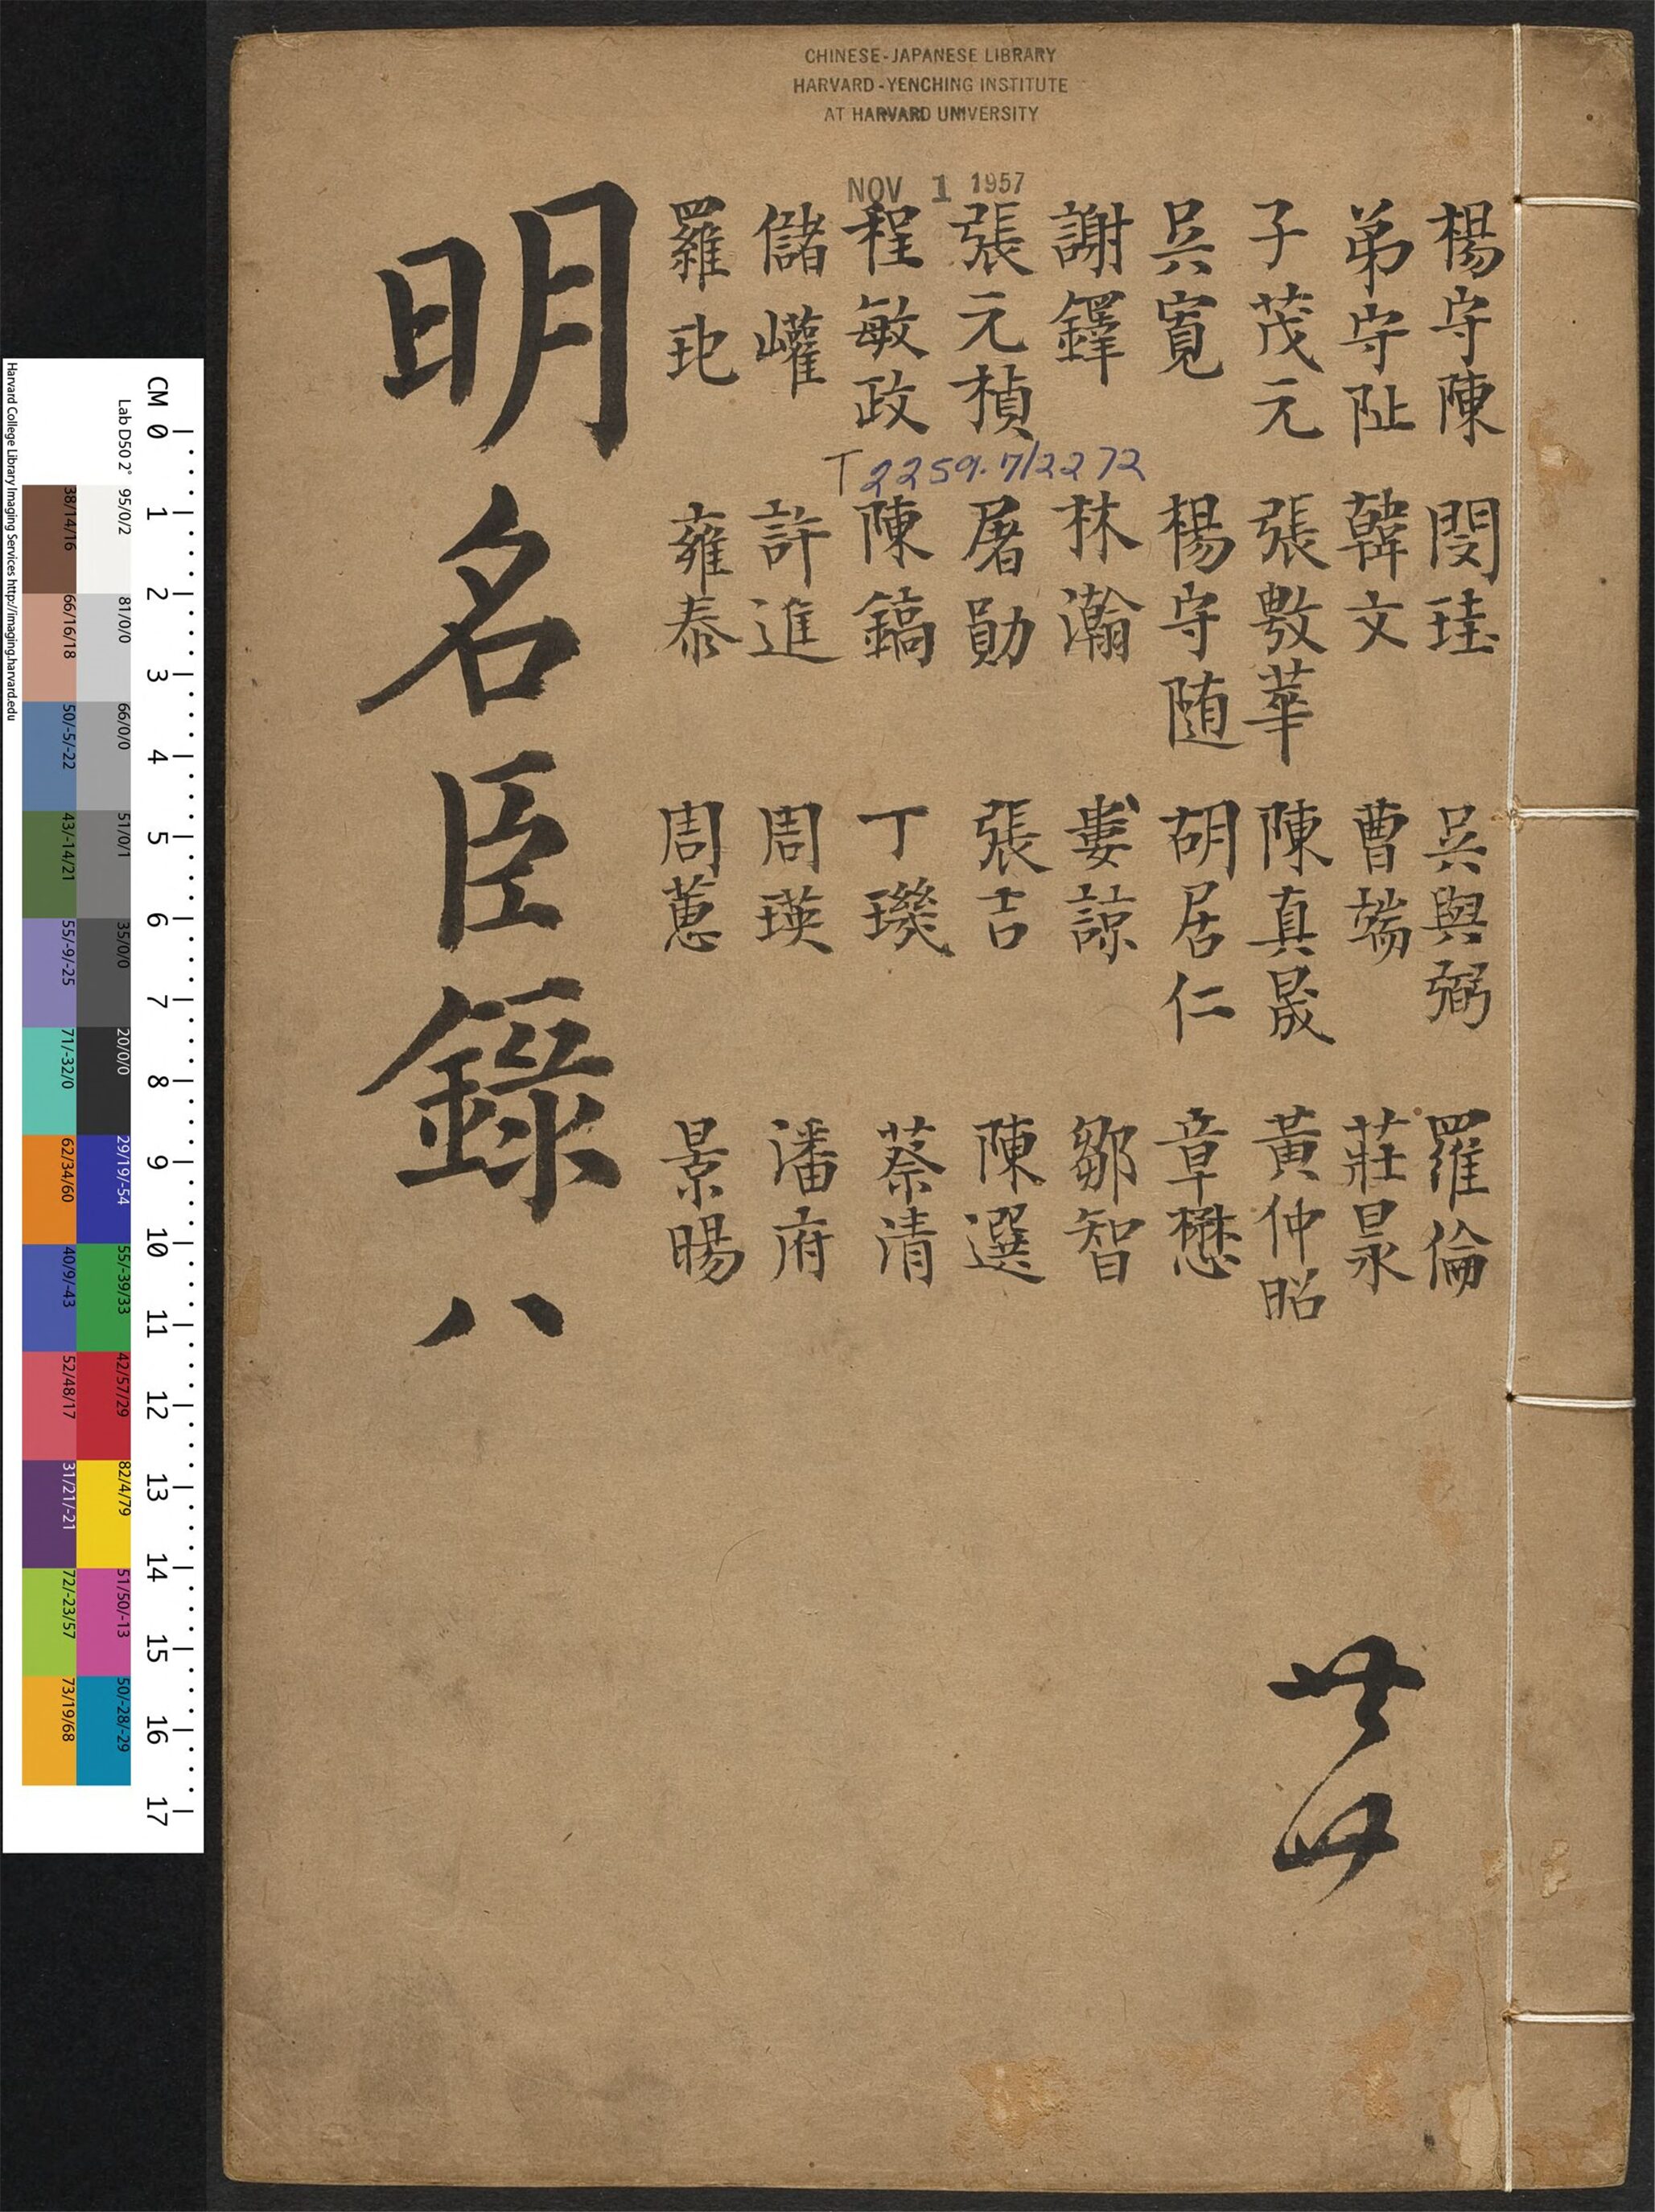 CHINESE-JAPANESE LIBRARY
HARVARD-YENCHING INSTITUTE
AT HARVARD UNIVERSITY
NOV 1 1957
T 2259.7/2272
楊守陳
弟守阯
子茂元
吳寬
謝鐸
張元楨
程敏政
儲巏
羅玘
閔珪
韓文
張敷華
楊守随
林瀚
屠勛
陳鎬
許進
雍泰
吳與弼
曹端
陳真晟
胡居仁
婁諒
張吉
丁璣
周瑛
周蕙
羅倫
莊㫤
黃仲昭
章懋
鄒智
陳選
蔡清
潘府
景暘
明名臣錄 八
共
CM 0 1 2 3 4 5 6 7 8 9 10 11 12 13 14 15 16 17
Lab D50 2° 95/0/2 81/0/0 66/0/0 51/0/1 35/0/0 20/0/0 29/19/-54 55/-39/33 42/57/29 82/4/79 51/50/-13 50/-28/-29
38/14/16 66/16/18 50/-5/-22 43/-14/21 55/-9/-25 71/-32/0 62/34/60 40/9/-43 52/48/17 31/21/-21 72/-23/57 73/19/68
Harvard College Library Imaging Services http://imaging.harvard.edu